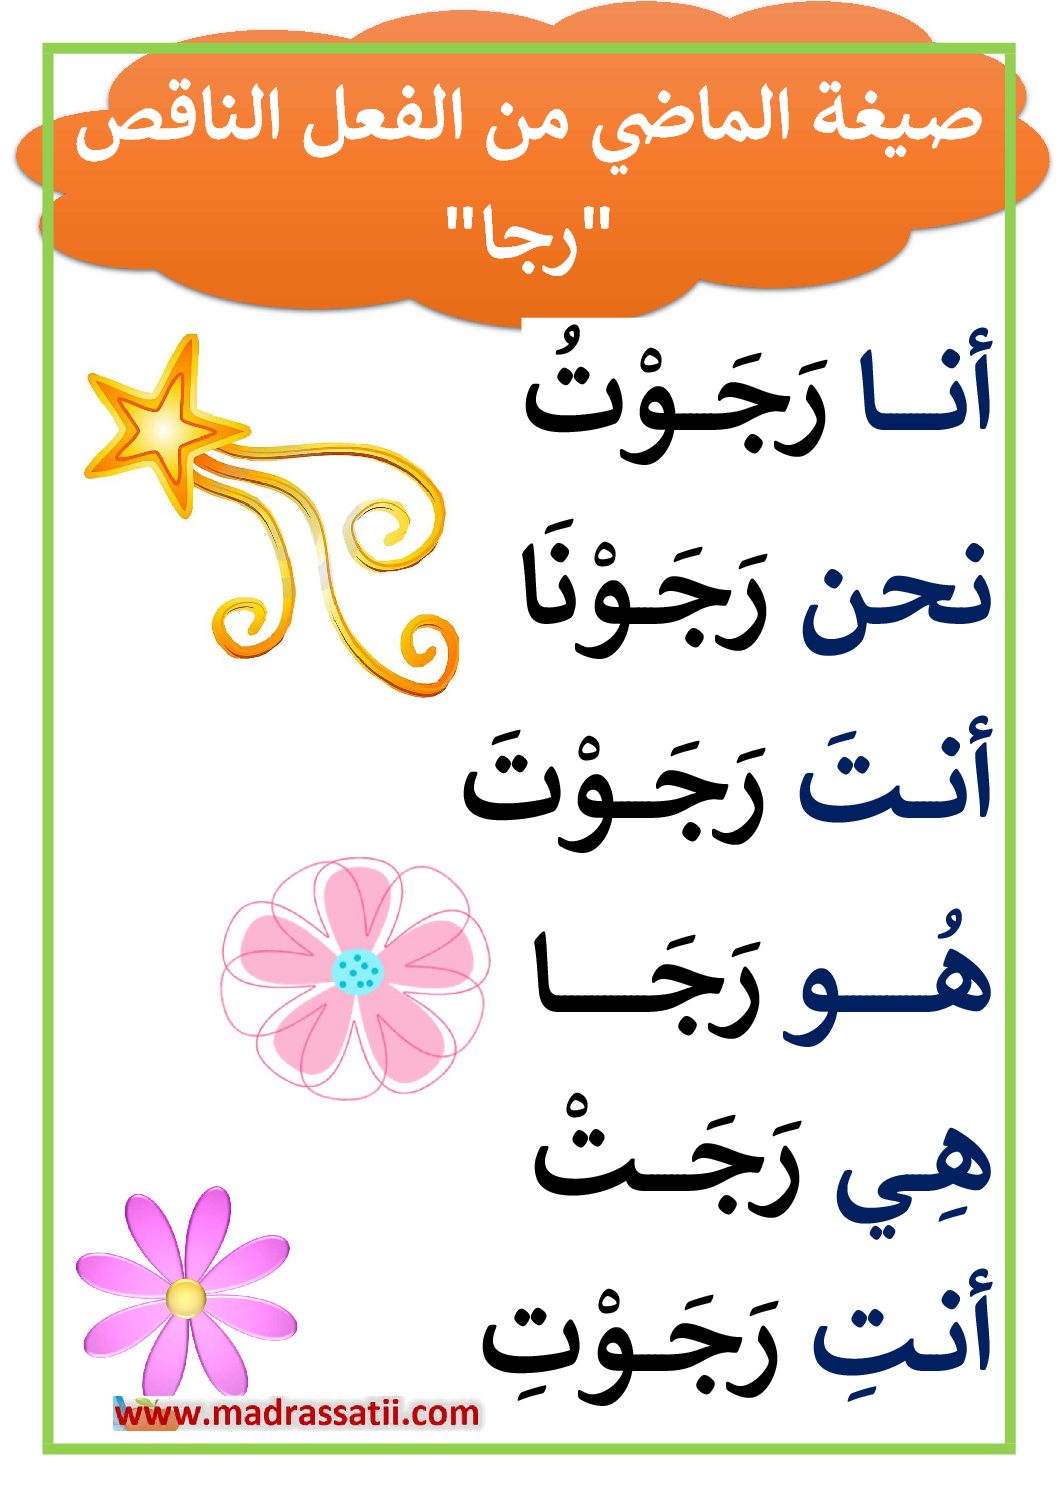 صيغة الماضي من الفعل الناقص
"رجا"
أنـــا رَجَــوْتُ
نحن رَجَــوْنَا
أنــتَ رَجَــوْتَ
هُـــــو رَجَـــــا
هِــي رَجَـــتْ
أنتِ رَجَــوْتِ
www.madrassatii.com